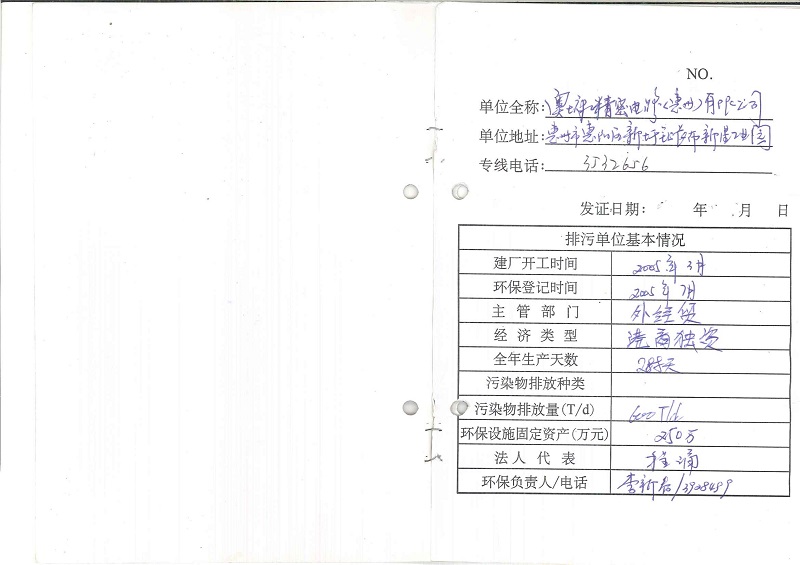 NO.
单位全称:奥士康精密电路(惠州)有限公司
单位地址:惠州市惠阳区新圩镇长布新居工业园
专线电话:3532656
发证日期: 年 月 日
排污单位基本情况
建厂开工时间 2005年3月
环保登记时间 2005年7月
主管部门 外经贸
经济类型 港商独资
全年生产天数 285天
污染物排放种类
污染物排放量(T/d) 600T/d
环保设施固定资产(万元) 250万
法人代表 程涌
环保负责人/电话 李新 /3908499